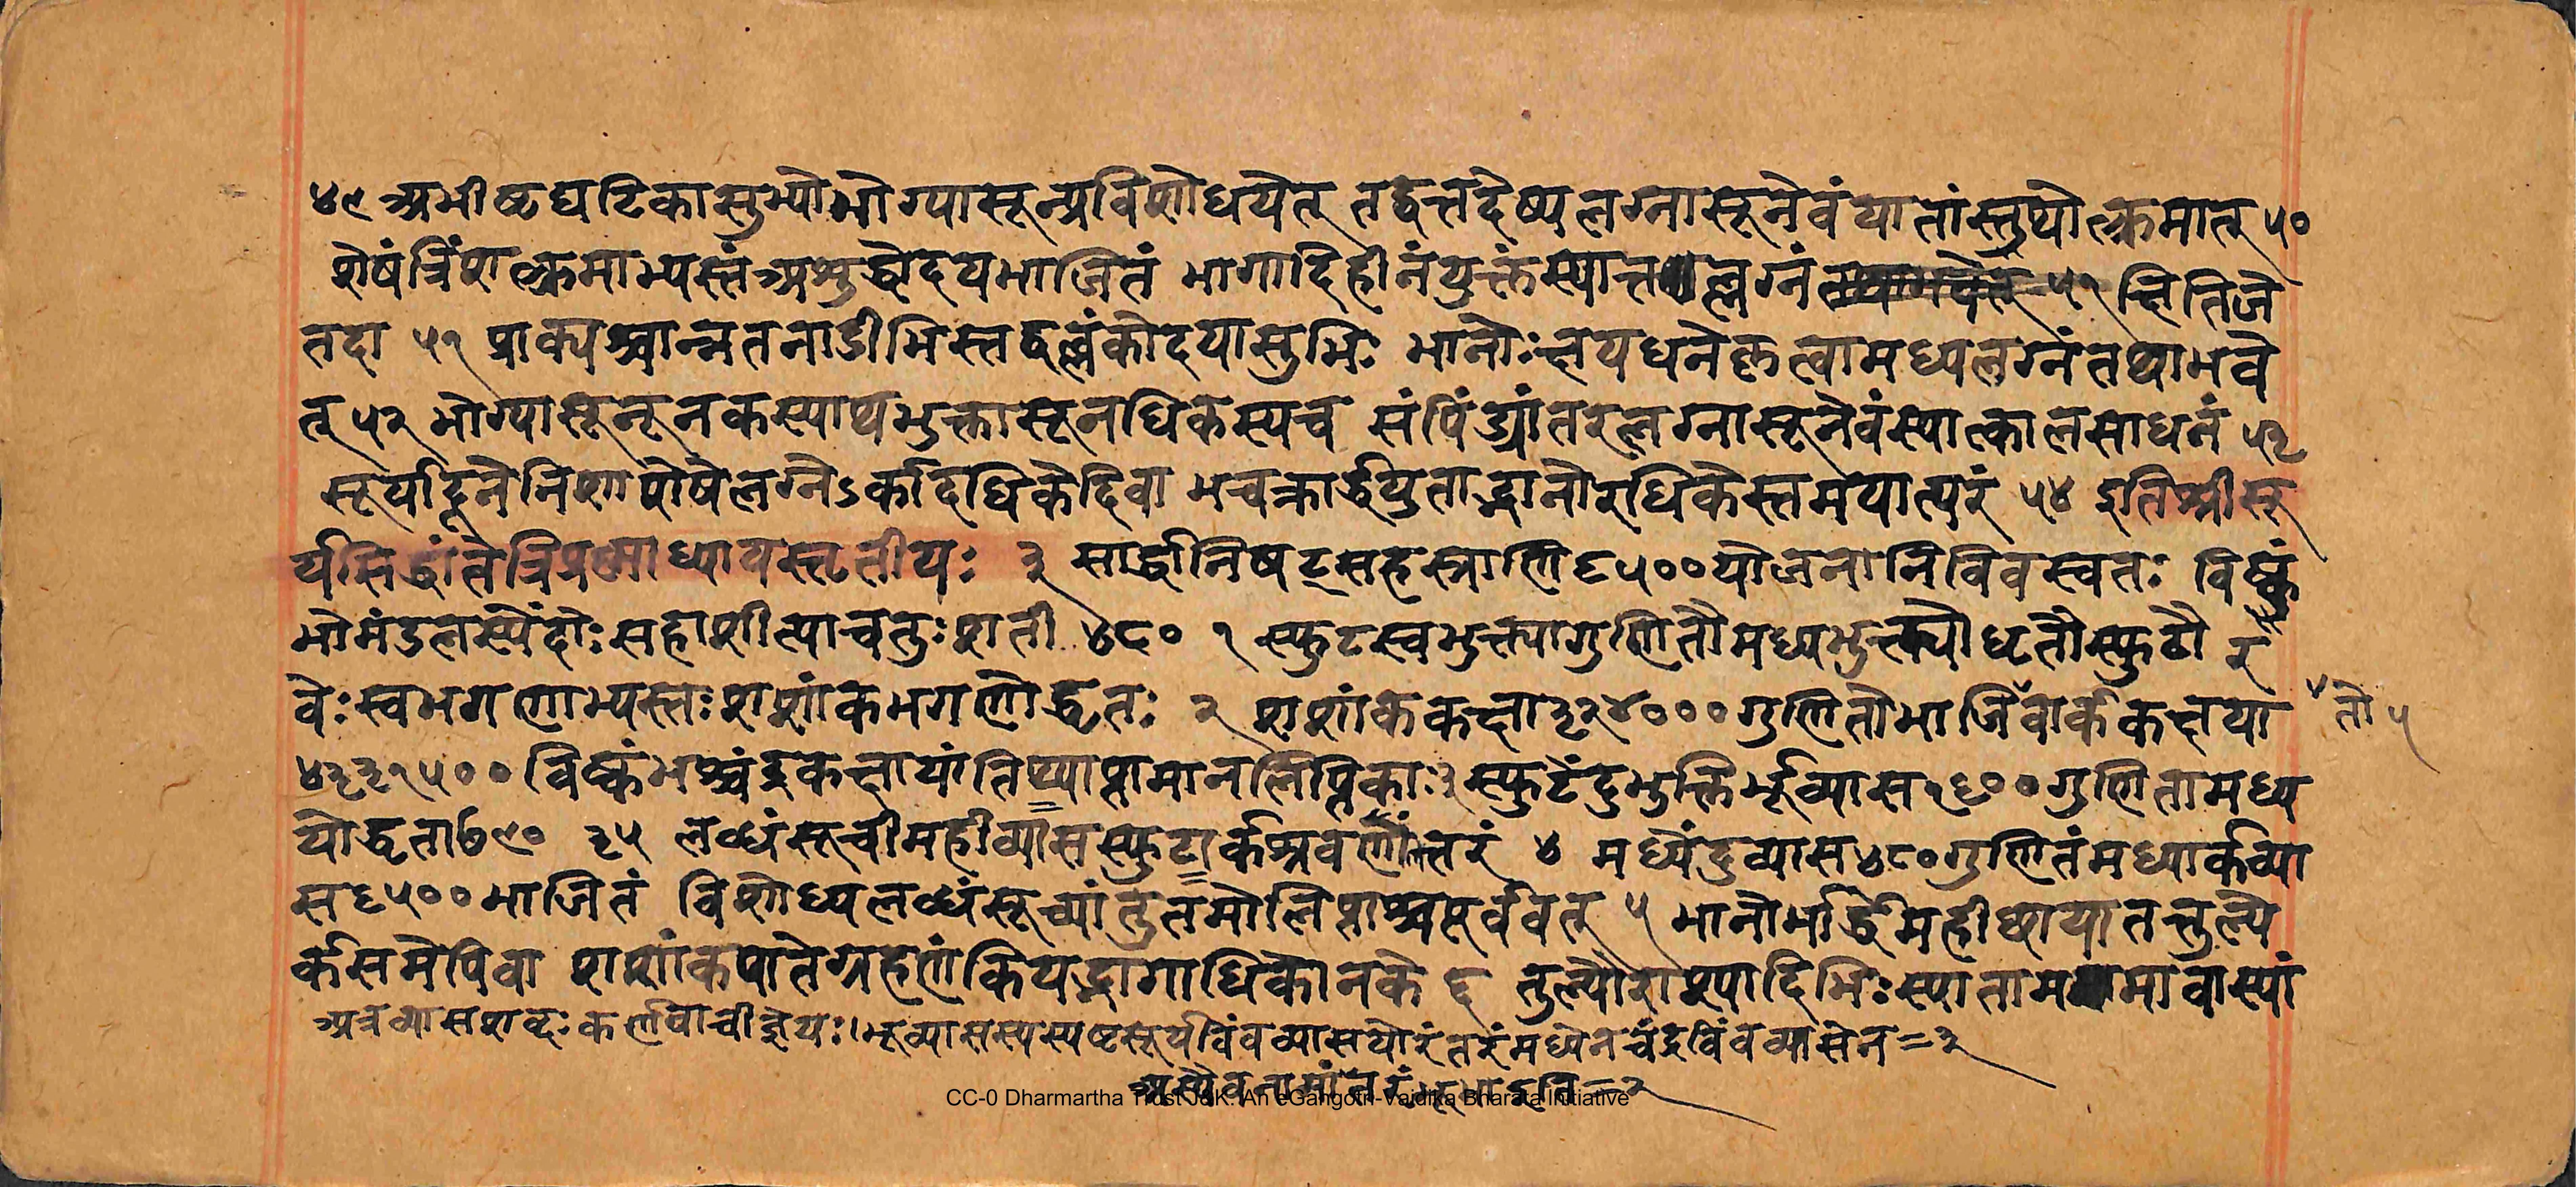 ४९ अभीष्टघटिकासुभ्योभोग्यासून्प्रविशोधयेत् तद्वत्तदेष्यलग्नासूनेवंयातांस्तथोत्क्रमात् ५०
शेषंत्रिंशत्क्रमाभ्यस्तंअशुद्धोदयभाजितं भागादिहीनंयुक्तंस्यात्तल्लग्नं क्षितिजे
तदा ५१ प्राक्पश्चान्नतनाडीभिस्तद्वल्लंकोदयासुभिः भानौःक्षयधनेकृत्वामध्यलग्नंतथाभवे
त् ५२ भोग्यासूनूनकस्याथभुक्तासूनधिकस्यच संपिंड्यांतरलग्नासूनेवंस्यात्कालसाधनं ५३
सूर्यादूनेनिशाशेषेलग्नेऽर्कादधिकेदिवा भचक्रार्द्धयुताद्भानोरधिकेस्तमयात्परं ५४ इतिश्रीसू
र्यसिद्धांतेत्रिप्रश्नाध्यायस्तृतीयः ३ सार्द्धानिषट्सहस्त्राणि६५००योजनानिविवस्वतः विष्कं
भोमंडलस्येंदोःसहाशीत्याचतुःशती ४८० १ स्फुटस्वभुक्त्यागुणितौमध्यभुक्त्योधृतौस्फुटौ र
वेःस्वभगणाभ्यस्तःशशांकभगणोद्धृतः २ शशांककक्षा३२४०००गुणितोभाजितोवार्ककक्षया
४३३१५००विष्कंभश्चंद्रकक्षायांतिथ्याप्तामानलिप्तिकाः३स्फुटेंदुभुक्तिर्भूव्यास१६००गुणितामध्य
योद्धृता७९० ३५ लब्धंसूचीमहीव्यासस्फुटार्कश्रवणांतरं ४ मध्येंदुव्यास४८०गुणितंमध्यार्कव्या
स६५००भाजितं विशोध्यलब्धंसूच्यांतुतमोलिप्ताश्चपूर्ववत् ५ भानोर्भार्द्धेमहीछायातत्तुल्ये
र्कसमेपिवा शशांकपातेग्रहणंकियद्भागाधिकोनके ६ तुल्यौराश्यादिभिःस्याताममावास्यां
अत्रव्यासशब्दःकर्णवाचीज्ञेयः।भूव्यासस्यस्पष्टसूर्यविंवव्यासयोरंतरंमध्येनचंद्रविंवव्यासेन=३
अस्यैवनामांतरंभूभाइति=२
CC-0 Dharmartha Trust J&K. An eGangotri-Vaidika Bharata Initiative